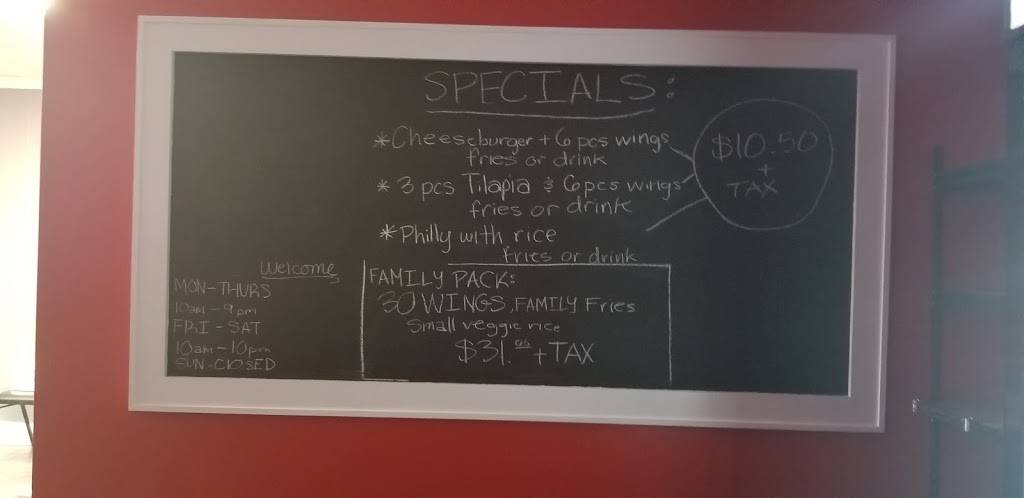 SPECIALS:
*Cheeseburger + 6 pcs wings
fries or drink
* 3 pcs Tilapia & 6pcs wings
fries or drink
*Philly with rice
fries or drink
$10.50
+
TAX
Welcome
MON-THURS
10am - 9pm
FRI - SAT
10am - 10pm
SUN-ClOSED
FAMILY PACK:
30 WINGS, FAMILY Fries
Small veggie rice
+ TAX